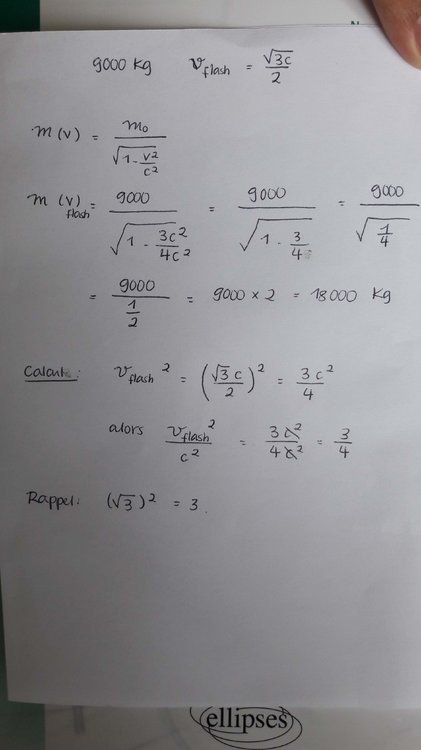 9000 Kg v_flash = √3c/2
m(v) = m₀/√(1 - v²/c²)
m(v)_flash = 9000/√(1 - 3c²/4c²) = 9000/√(1 - 3/4) = 9000/√(1/4)
= 9000/(1/2) = 9000 × 2 = 18000 Kg
Calculs: v_flash² = (√3 c/2)² = 3c²/4
alors v_flash²/c² = 3c²/4c² = 3/4
Rappel: (√3)² = 3.
ellipses